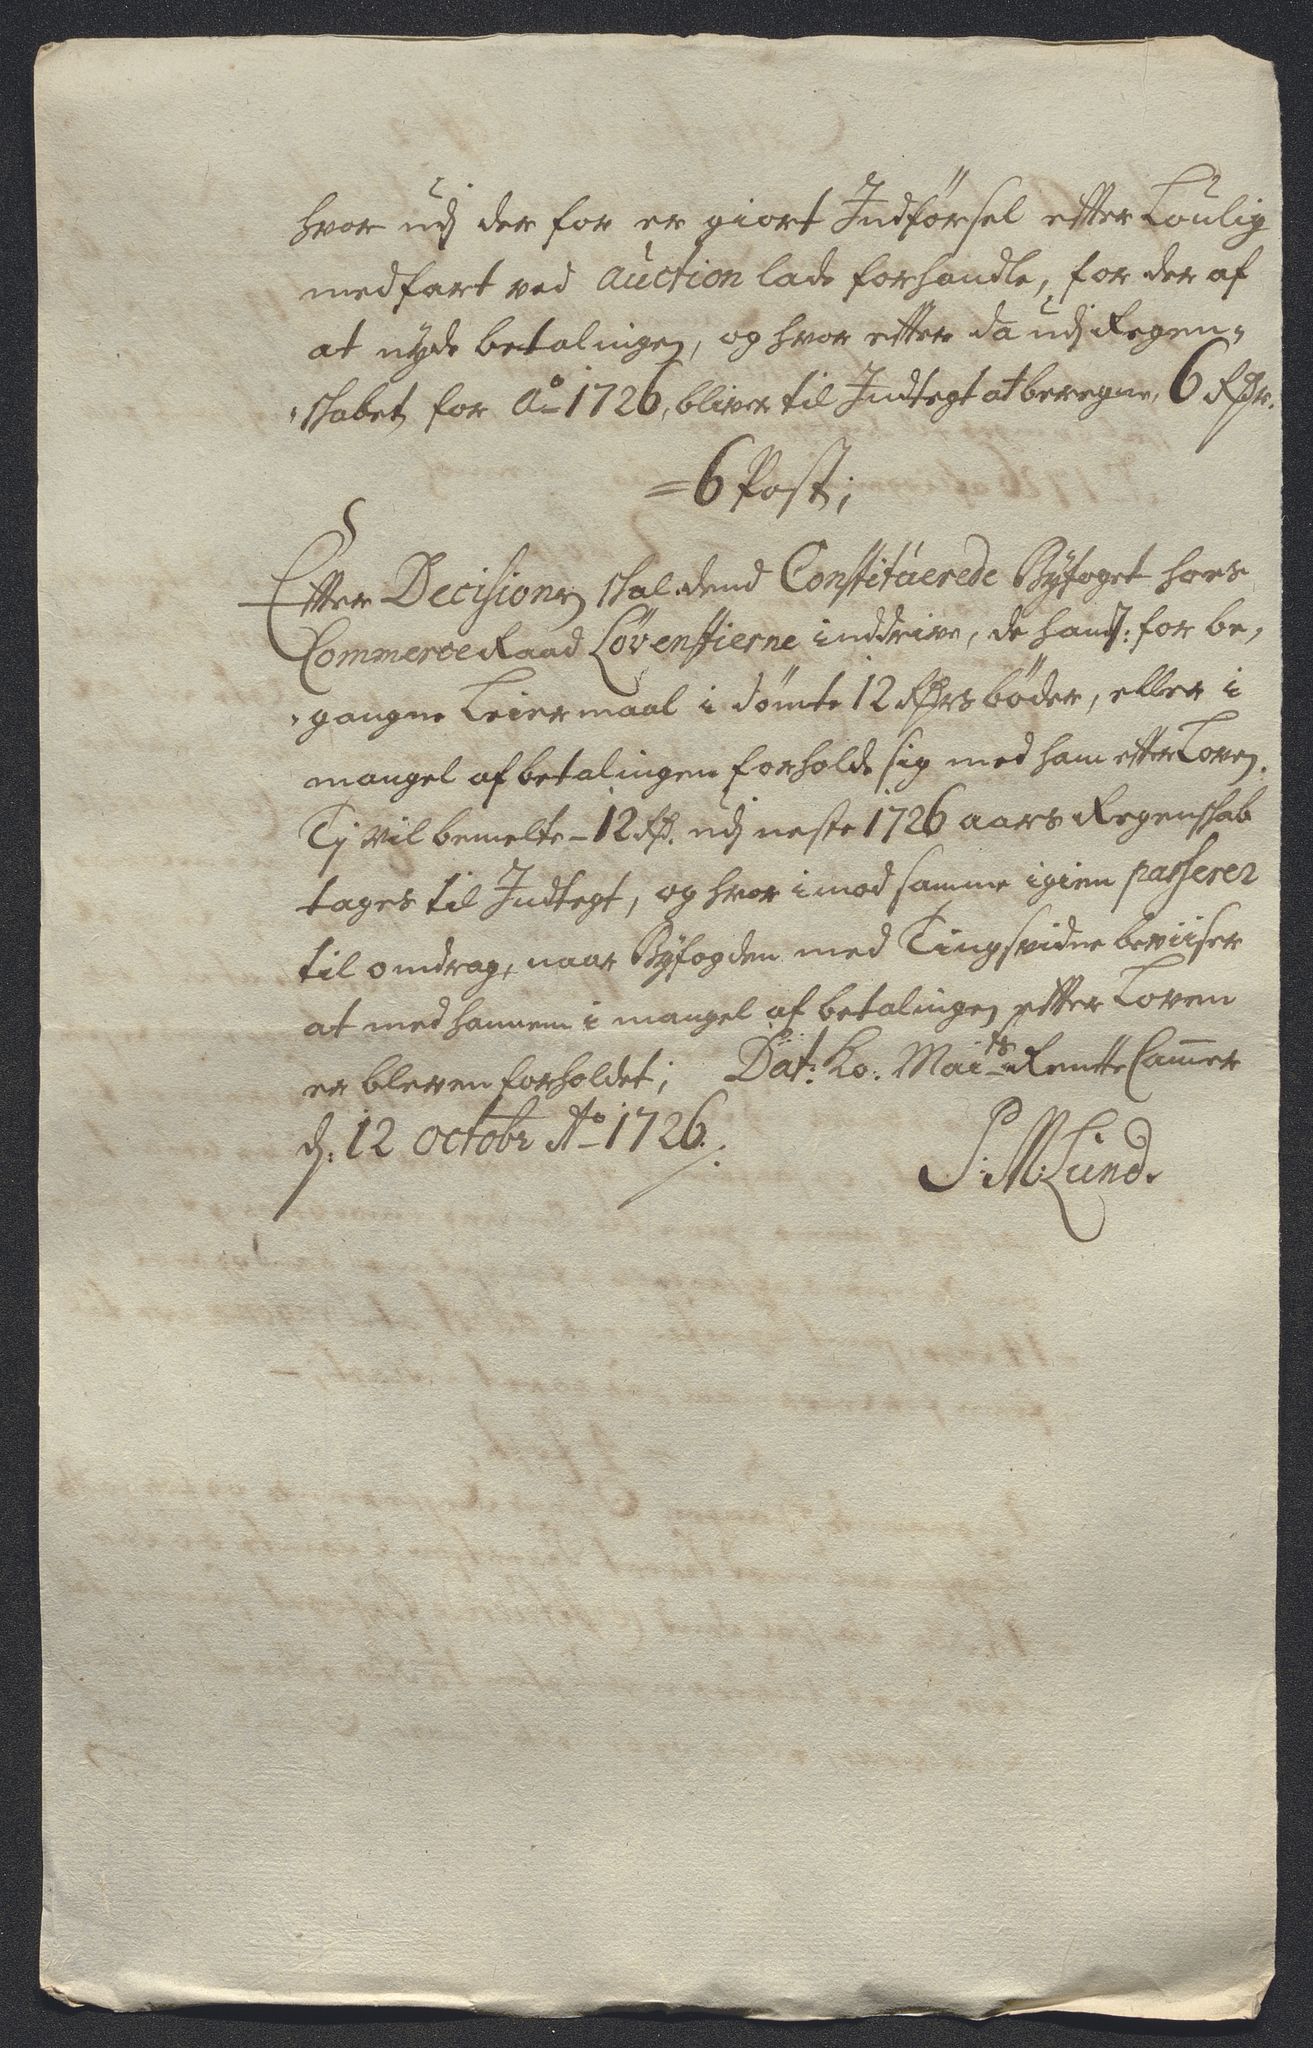 hvor udj der for er giort Indførsel efter Loulig
medfart ved Auction lade forhandle, for der af
at nyde betalingen, og hvor efter da udj Regen-
skabet for Ao 1726, bliver til Indtegt at beregne, 6 Rdr.
=6 Post;
Efter Decisionen skal dend Constituerede Byfoget hos
CommerceRaad Løvenstierne inddrive, de hands: for be,
gangne Leiermaal i dømte 12 Rdrs bøder, eller i
mangel af betalingen forholde sig med ham efter Loven.
Ti vil bemelte 12 Rd. udj neste 1726 aars Regenskab
tages til Indtegt, og hvor imod samme igien passerer
til omdrag, naar Byfogden med Tingsvidne beviiser
at med hannem i mangel af betalingen efter Loven
er bleven forholdet; Dat: Ko: Maits RentteCamer
d: 12 Octobr Ao 1726.
P: M: Lund.